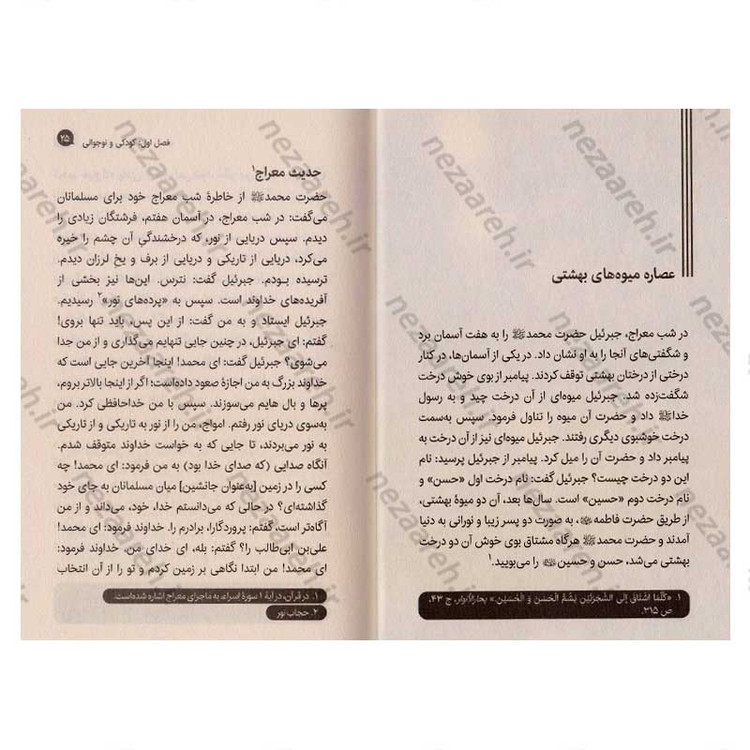 عصاره میوه‌های بهشتی
در شب معراج، جبرئیل حضرت محمدﷺ را به هفت آسمان برد
و شگفتی‌های آنجا را به او نشان داد. در یکی از آسمان‌ها، در کنار
درختی از درختان بهشتی توقف کردند. پیامبر از بوی خوش درخت
شگفت‌زده شد. جبرئیل میوه‌ای از آن درخت چید و به رسول
خداﷺ داد و حضرت آن میوه را تناول فرمود. سپس به‌سمت
درخت خوشبوی دیگری رفتند. جبرئیل میوه‌ای نیز از آن درخت به
پیامبر داد و حضرت آن را میل کرد. پیامبر از جبرئیل پرسید: نام
این دو درخت چیست؟ جبرئیل گفت: نام درخت اول «حسن» و
نام درخت دوم «حسین» است. سال‌ها بعد، آن دو میوۀ بهشتی،
از طریق حضرت فاطمه، به صورت دو پسر زیبا و نورانی به دنیا
آمدند و حضرت محمدﷺ هرگاه مشتاق بوی خوش آن دو درخت
بهشتی می‌شد، حسن و حسین را می‌بویید.۱
۱. «کُلَّمَا اشْتَاقَ إِلَی الشَّجَرَتَیْنِ یَشُمُّ الْحَسَنَ وَ الْحُسَیْنَ.» بحارالأنوار، ج ۴۳،
ص ۳۱۵.
فصل اول: کودکی و نوجوانی ۲۵
حدیث معراج۱
حضرت محمدﷺ از خاطرۀ شب معراج خود برای مسلمانان
می‌گفت: در شب معراج، در آسمان هفتم، فرشتگان زیادی را
دیدم. سپس دریایی از نور، که درخشندگیِ آن چشم را خیره
می‌کرد، دریایی از تاریکی و دریایی از برف و یخ لرزان دیدم.
ترسیده بودم. جبرئیل گفت: نترس. این‌ها نیز بخشی از
آفریده‌های خداوند است. سپس به «پرده‌های نور»۲ رسیدیم.
جبرئیل ایستاد و به من گفت: از این پس، باید تنها بروی!
گفتم: ای جبرئیل، در چنین جایی تنهایم می‌گذاری و از من جدا
می‌شوی؟ جبرئیل گفت: ای محمد! اینجا آخرین جایی است که
خداوند بزرگ به من اجازۀ صعود داده‌است؛ اگر از اینجا بالاتر بروم،
پرها و بال هایم می‌سوزند. سپس با من خداحافظی کرد. من
به‌سوی دریای نور رفتم. امواج، من را از نور به تاریکی و از تاریکی
به نور می‌بردند، تا جایی که به خواست خداوند متوقف شدم.
آنگاه صدایی (که صدای خدا بود) به من فرمود: ای محمد! چه
کسی را در زمین [به‌عنوان جانشین] میان مسلمانان به جای خود
گذاشته‌ای؟ در حالی که می‌دانستم خدا، خود، می‌داند و از من
آگاه‌تر است، گفتم: پروردگارا، برادرم را. خداوند فرمود: ای محمد!
علی‌بن ابی‌طالب را؟ گفتم: بله، ای خدای من. خداوند فرمود:
ای محمد! من ابتدا نگاهی بر زمین کردم و تو را از آن انتخاب
۱. در قرآن، در آیۀ ۱ سورۀ اسراء، به ماجرای معراج اشاره شده‌است.
۲. حجاب نور
nezaareh.ir